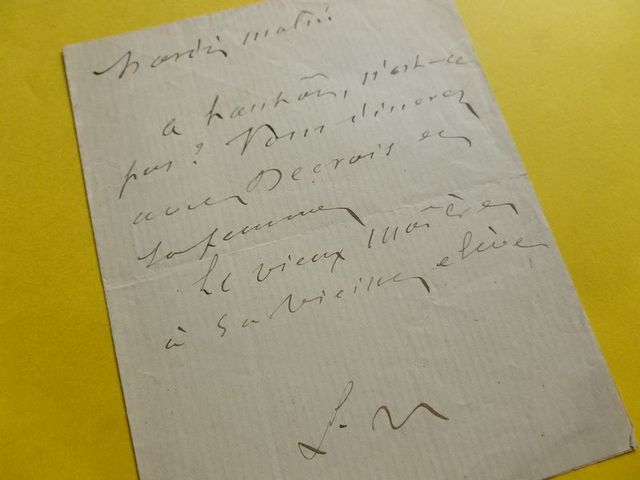 Mardi matin.
a tantôt, n'est-ce
pas? Vous dinerez
avec Decrais et
sa femme
Le vieux maître
à sa vieille élève
L. M